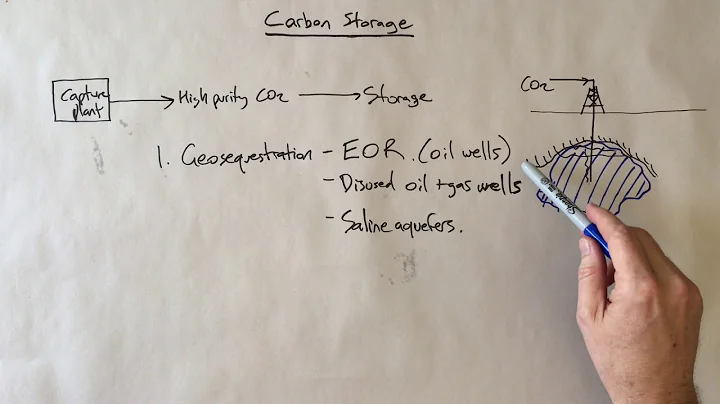 Carbon Storage
Capture plant → High purity CO2 → Storage
CO2
1. Geosequestration - EOR. (oil wells)
- Disused oil + gas wells
- Saline aquefers.
Sharpie